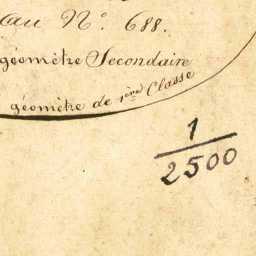 au N° 688.
géomètre Secondaire
géomètre de 1ère Classe
1
2500